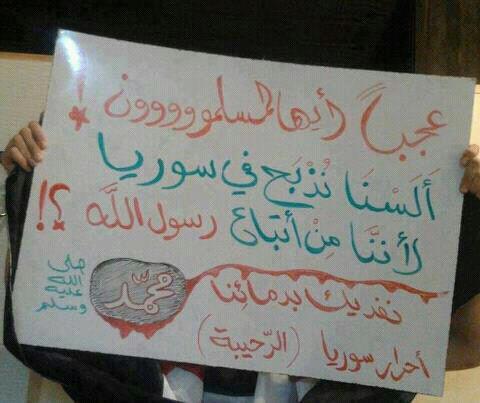 عجباً أيها المسلمووووون !
أَلَسْنَا نُذْبَح في سوريا
لأننَّا مِنْ أتباع رسول اللَّه ؟!
محمّد صلى الله عليه وسلم
نفديك بدمائنا
أحرار سوريا (الرّحيبة)